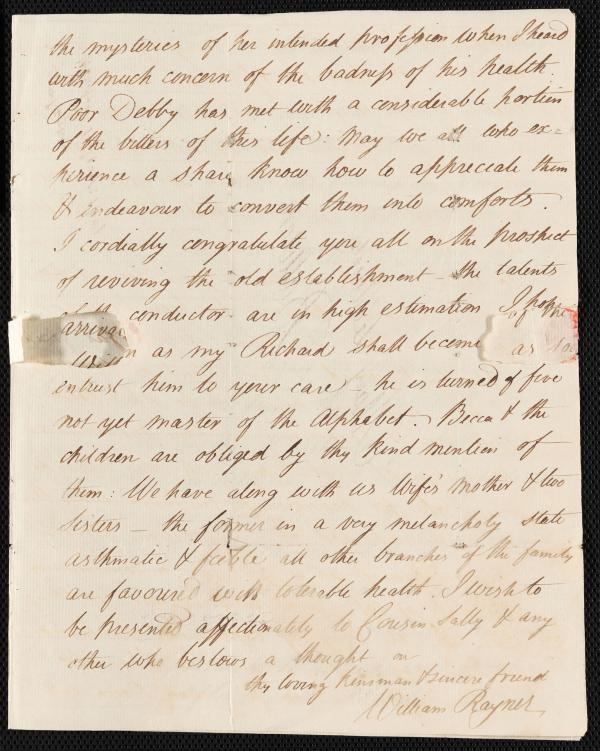 the mysteries of her intended profession when I heard
with much concern of the badness of his health.
Poor Debby has met with a considerable portion
of the bitters of this life: may we all who ex=
perience a share know how to appreciate them
& endeavour to convert them into comforts.
I cordially congratulate you all on the prospect
of reviving the old establishment – the talents
of the conductor are in high estimation I hope
arrival
as my Richard shall become as
entrust him to your care – he is turned of five
not yet master of the Alphabet. Becca & the
children are obliged by thy kind mention of
them: We have along with us Wife's mother & two
Sisters – the former in a very melancholy state
asthmatic & feeble all other branches of the family
are favoured with tolerable health. I wish to
be presented affectionately to Cousin Sally & any
other who bestows a thought on
thy loving kinsman & sincere friend
William Rayner